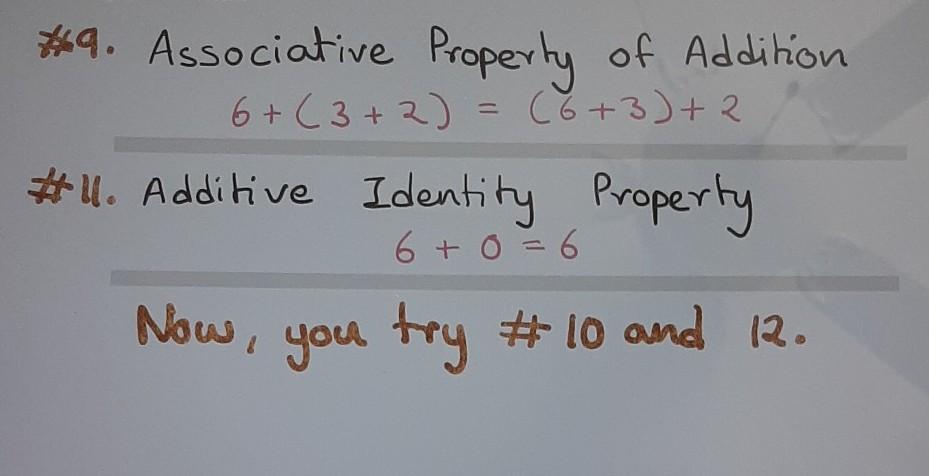 #9. Associative Property of Addition
6 + (3 + 2) = (6 + 3) + 2
#11. Additive Identity Property
6 + 0 = 6
Now, you try # 10 and 12.